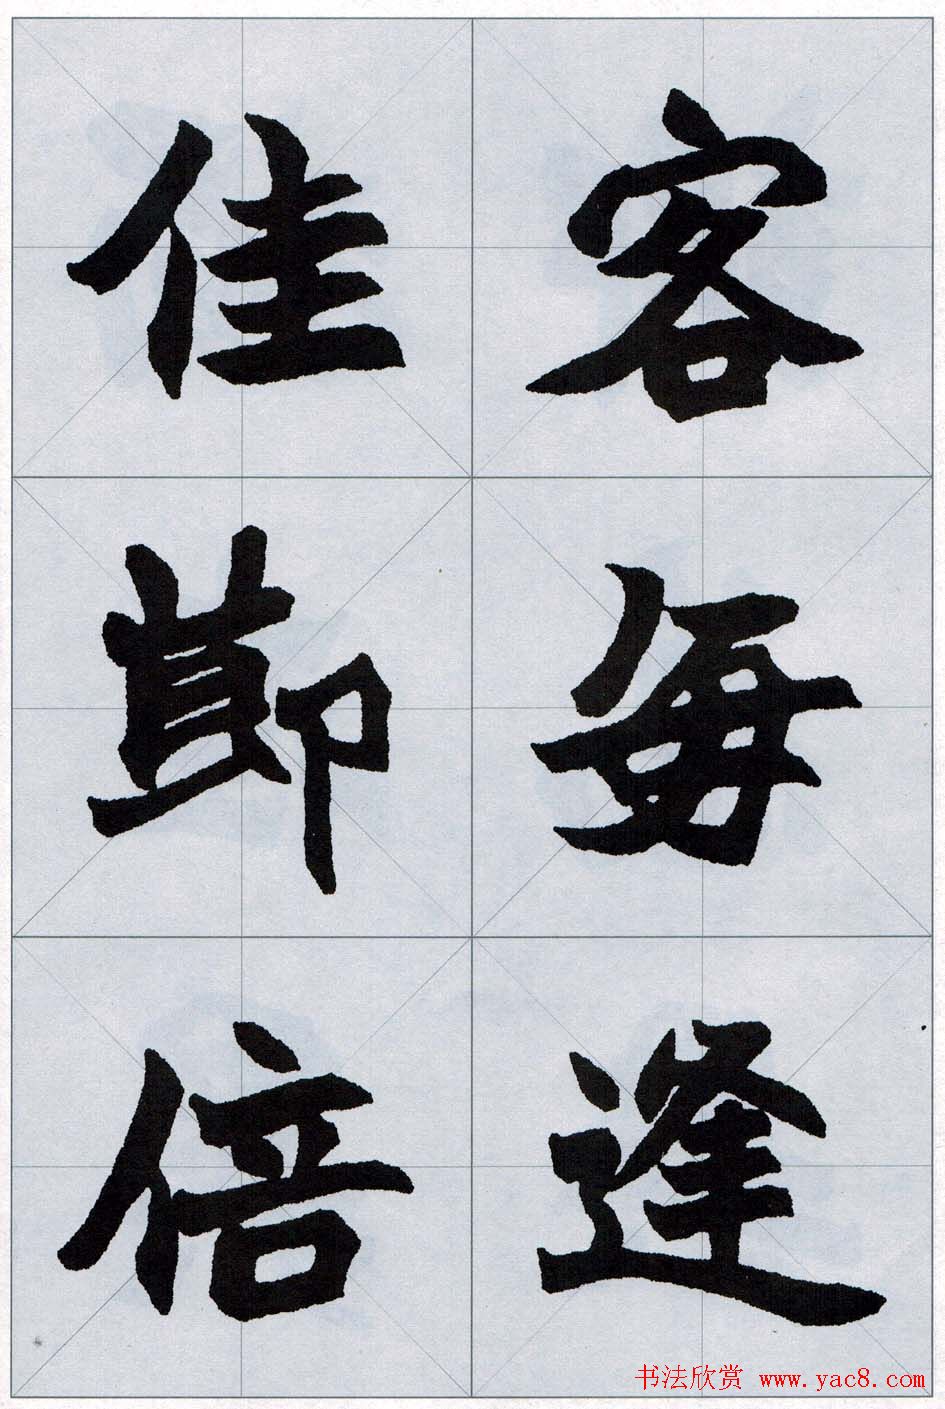 客每逢
佳莭倍
书法欣赏 www.yac8.com